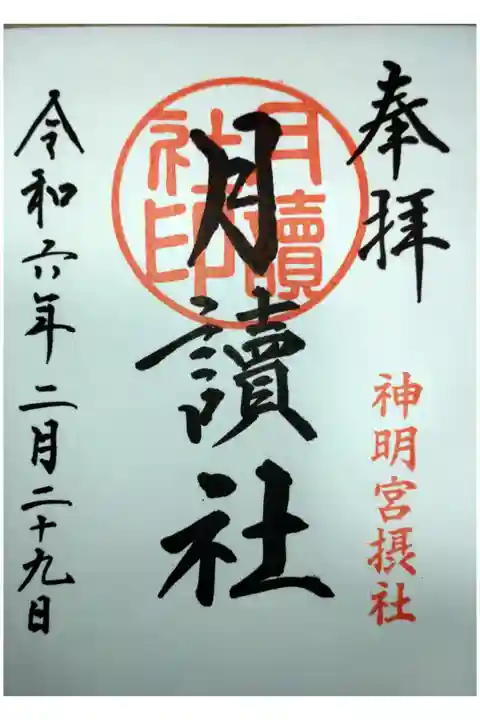 奉拝
神明宮摂社
月讀社
月讀社印
令和六年二月二十九日